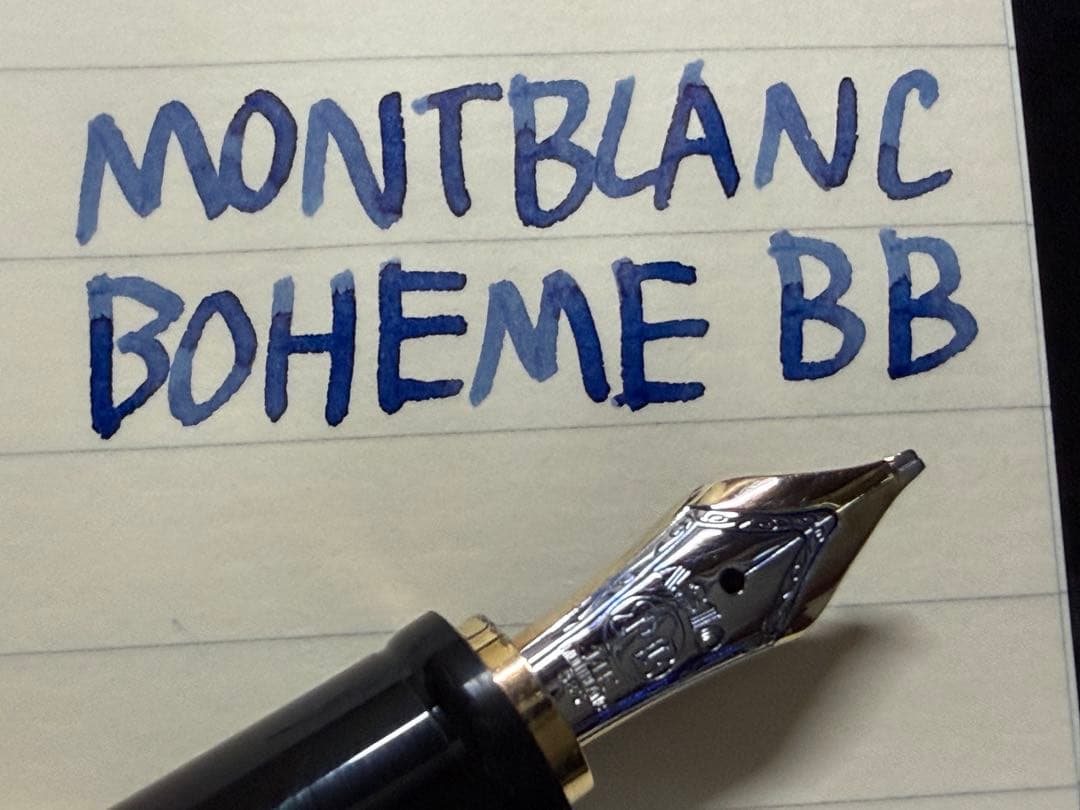 MONTBLANC
BOHEME BB